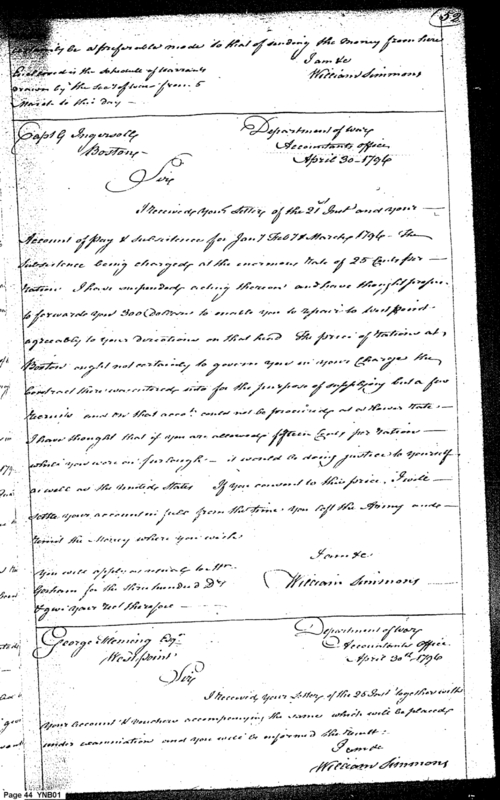 52
certainly be a preferable mode to that of sending the money from here
I am &c
Enclosed is the Schedule of Warrants
William Simmons
drawn by the Secy of War from 5
March to this day —
Capt G Ingersoll
Boston —
Department of War
Accountants office
April 30 - 1796
Sir
I received your Letter of the 21st Inst and your —
Account of pay & subsistence for Jany Feby & March 1796 — The
subsistence being charged at the enormous rate of 25 Cents per —
ration I have suspended acting thereon and have thought proper
to forward you 300 Dollars to enable you to repair to West Point
agreeably to your directions on that head The price of rations at
Boston ought not certainly to govern you in your Charge the
Contract there was entered into for the purpose of supplying but a few
Recruits and on that accot. could not be procured at a lower rate —
I have thought that if you are allowed fifteen Cents per ration —
while you were on furlough — it would be doing justice to yourself
as well as the United States If you consent to this price, I will —
settle your account in full from the time you left the Army and —
remit the Money where you wish
I am &c
William Simmons
You will apply as usual to Mr
Gorham for the three hundred Drs
& give your rect therefore —
George Fleming Esqr
West point
Department of War
Accountants Office
April 30th 1796
Sir
I received your Letter of the 25 Inst together with
your Account & vouchers accompanying the same which will be placed
under examination and you will be informed the result.
I am &c
William Simmons
Page 44 YNB01